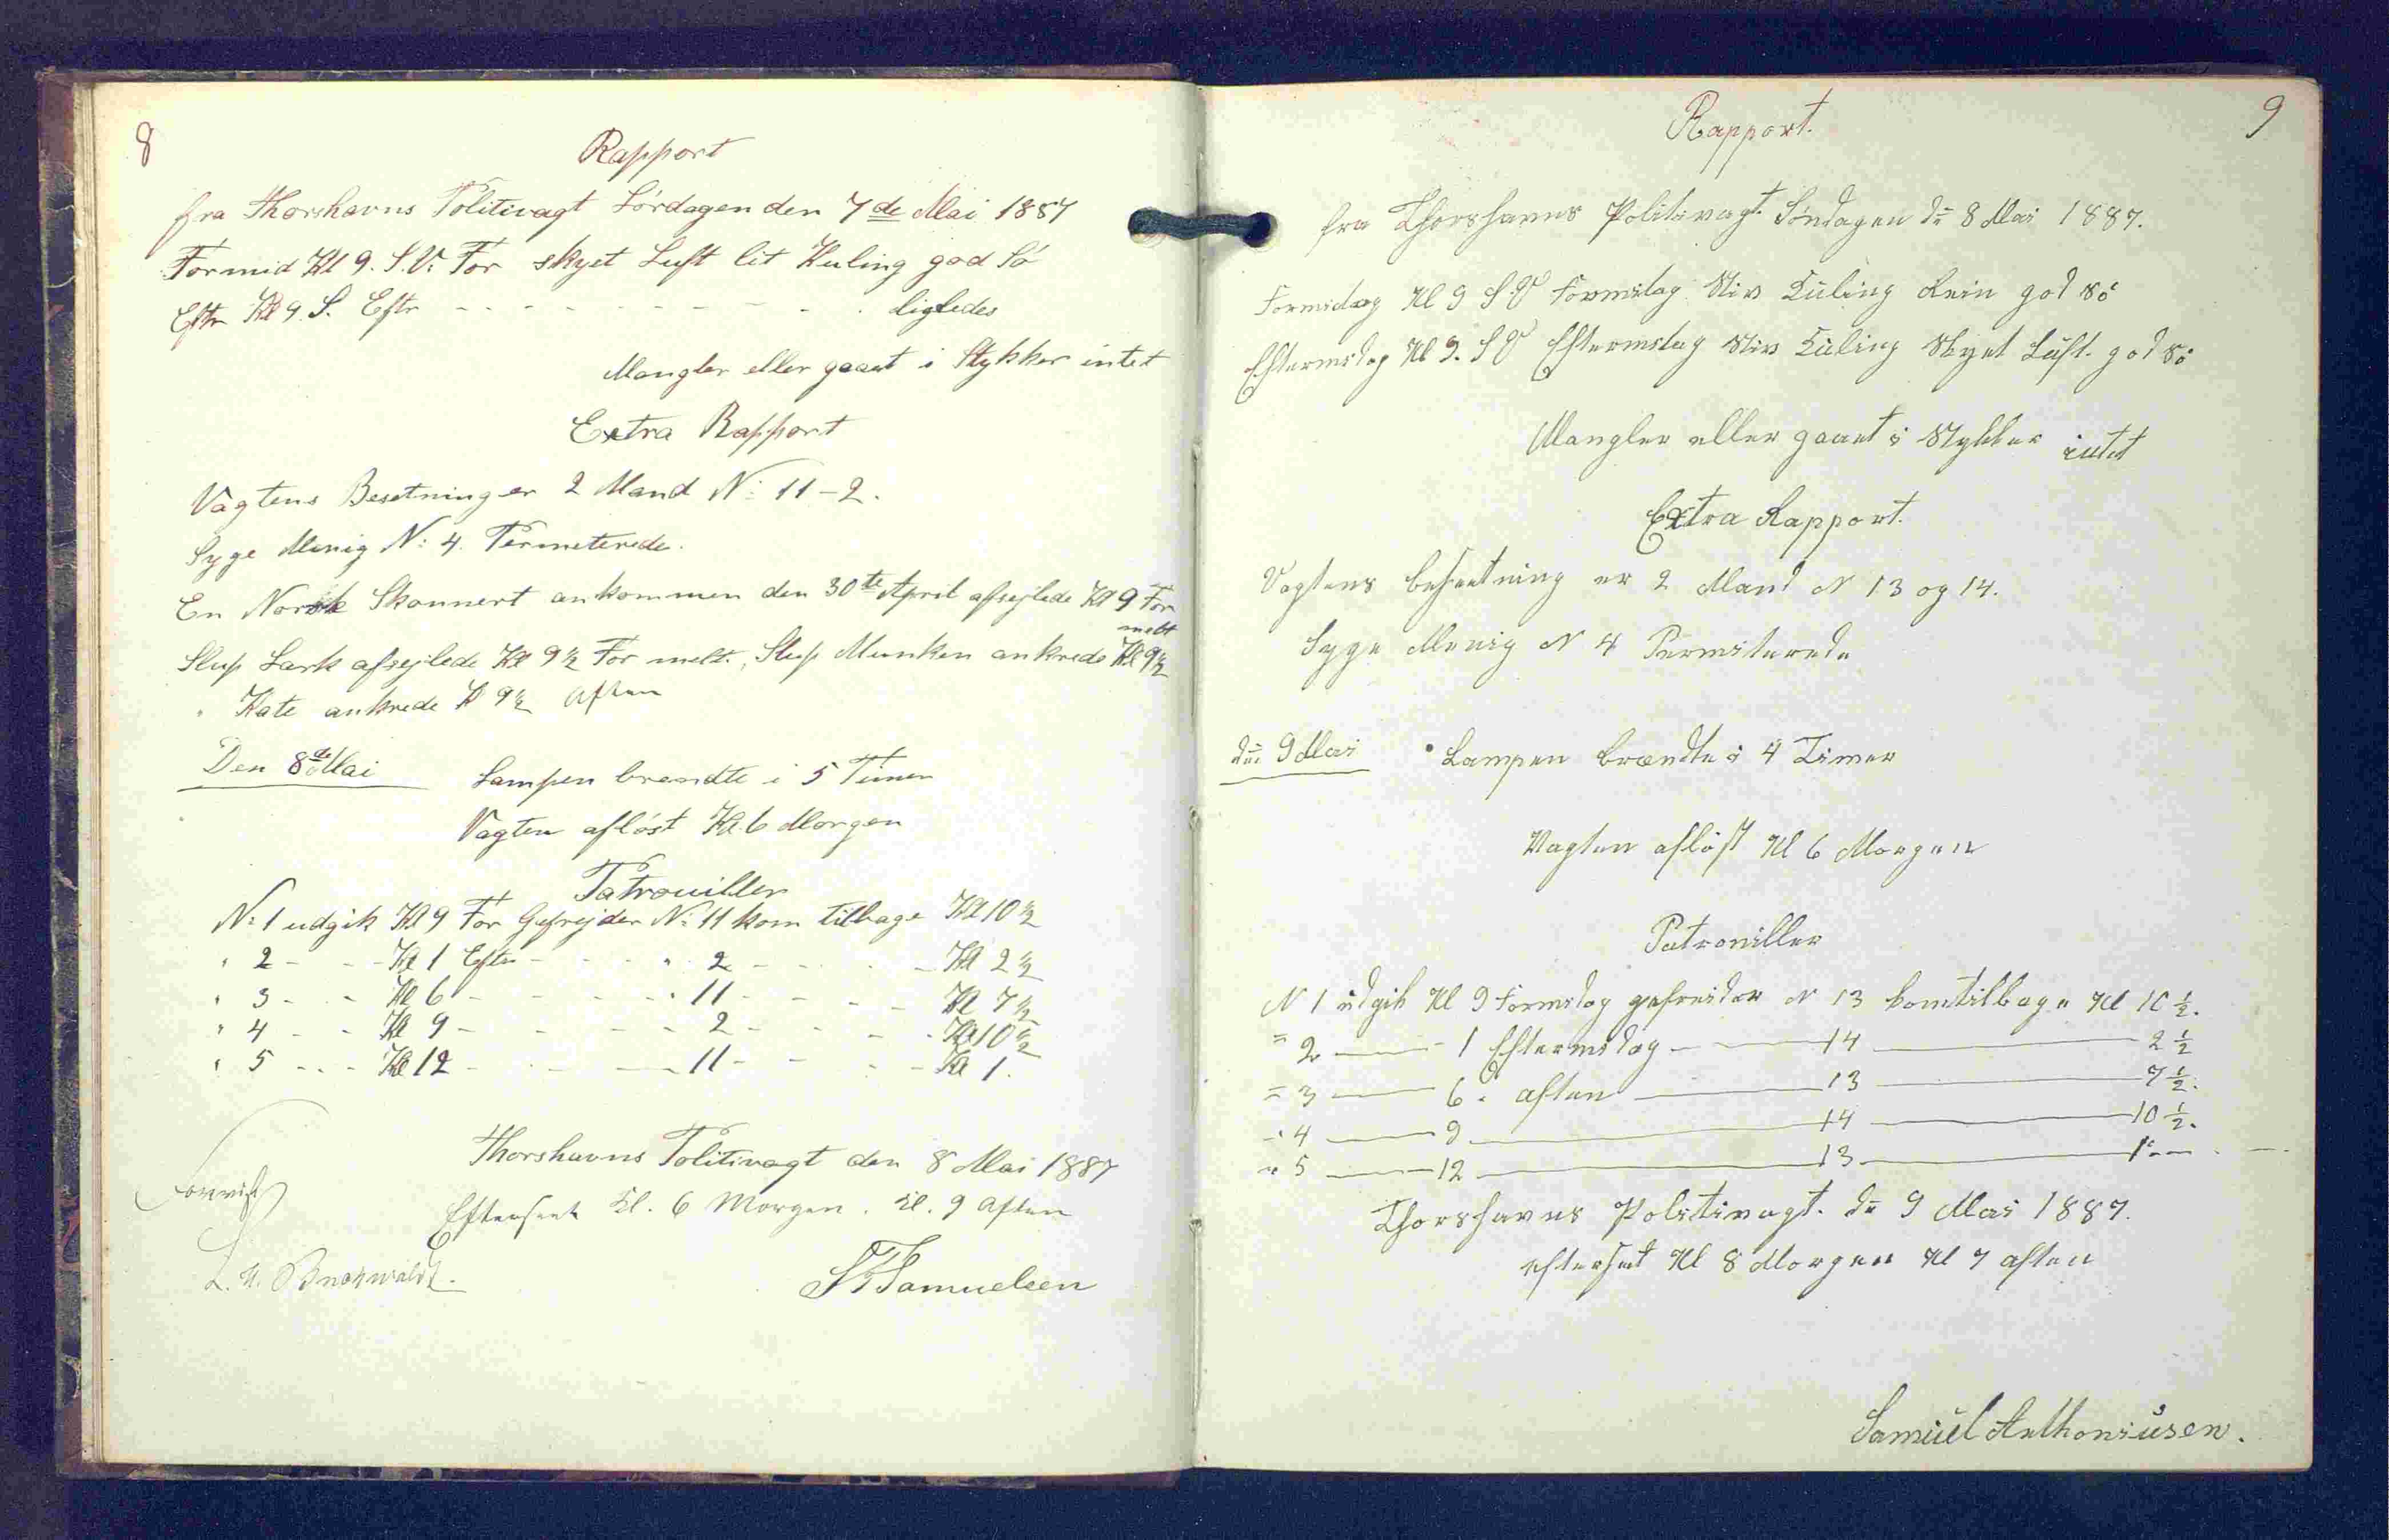 8
Rapport
fra Thorshavns Politivagt Lördagen den 7de Mai 1887
Formid Kl 9. S.V. For skyet Luft lit Kuling god Sö
Eftr Kl 9. S. Eftr - - - - - - - - ligledes
Mangler eller gaaet i Stykker intet
Extra Rapport
Vagtens Besetning er 2 Mand N: 11-2.
Syge Menig N: 4. Permeterede.
En Norsk Skonnert ankommen den 30te April afsejlede Kl 9 For
melt
Slup Lark afsejlede Kl 9½ For melt., Slup Munken ankrede Kl 9½
" Kate ankrede Kl 9½ Aften
Den 8de Mai Lampen brendte i 5 Timer
Vagten aflöst Kl. 6 Morgen
Patrouiller
N: 1 udgik Kl 9 For Gefrejder N: 11 kom tilbage Kl 10½
" 2 - - - Kl 1 Eftr - - - " 2 - - - - Kl 2½
" 3 - - Kl 6 - - - - " 11 - - - - Kl 7½
" 4 - - Kl 9 - - - - - 2 - - - - Kl 10½
" 5 - - - Kl 12 - - - - 11 - - - - Kl 1.
Thorshavns Politivagt den 8 Mai 1887
Eftterseet Kl. 6 Morgen. Kl. 9 Aften
Forevist
L. H. Buchwaldt.
Samuelsen
9
Rapport.
fra Thorshavns Politivagt. Söndagen dn 8 Mai 1887.
Formidag Kl 9 S.V Formidag Stiv Kuling Rein god Sö
Eftermidag Kl 9. S V Eftermidag Stiv Kuling Skyet Luft. god Sö
Mangler eller gaaet i Stykker intet
Extra Rapport.
Vagtens besaetning er 2 Mand N 13 og 14.
Syge Menig N 4 Permiterede
dn 9 Mai Lampen brændte i 4 Timer
Vagten aflöst Kl 6 Morgen
Patroniller
N 1 udgik Kl 9 Formidag gefreider N 13 kom tilbage Kl 10½.
" 2 — 1 Eftermidag — 14 — 2½
" 3 — 6 aften — 13 — 7½.
" 4 — 9 — 14 — 10½.
" 5 — 12 — 13 — 1
Thorshavns Politivagt. dn 9 Mai 1887.
efterset Kl 8 Morgen Kl 7 aften
Samuel Anthoniusen.